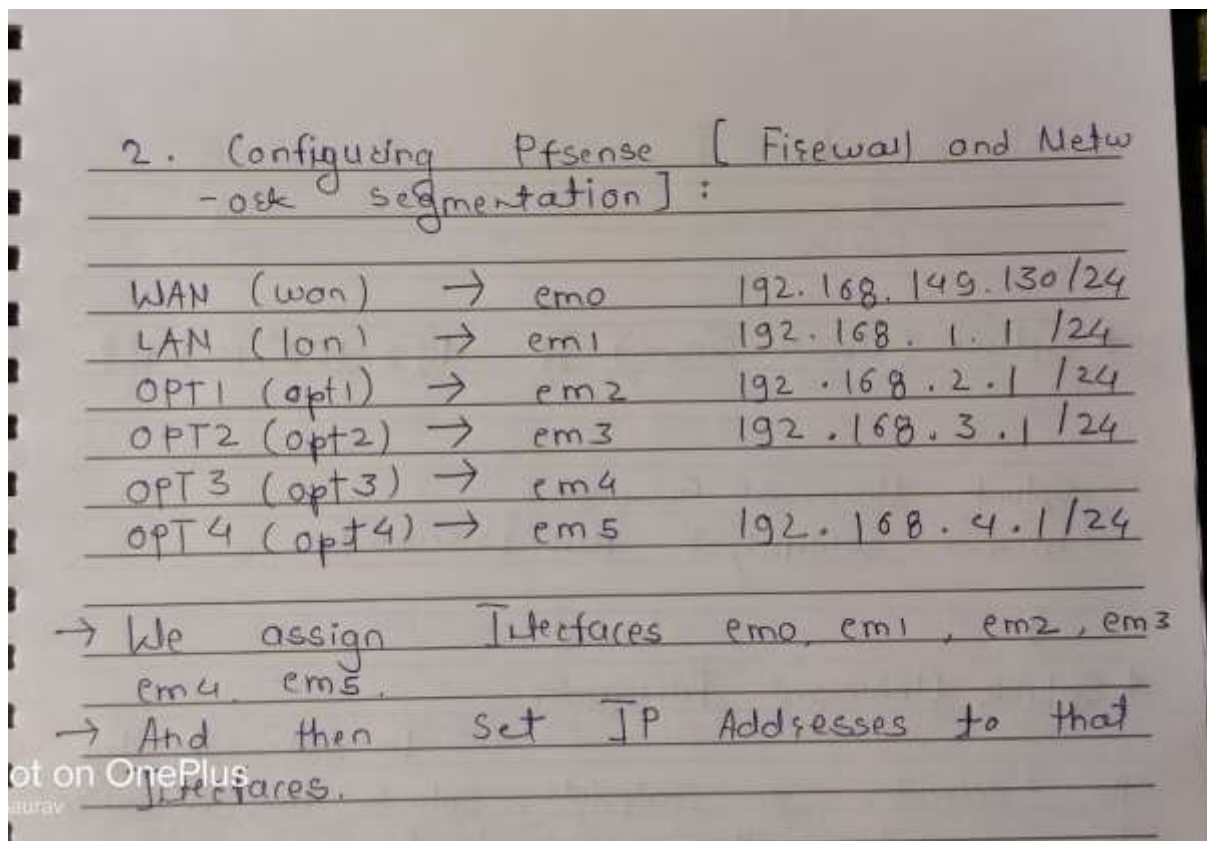 2. Configuring Pfsense [ Firewall and Netw
-ork segmentation ] :
WAN (wan) → em0 192.168.149.130/24
LAN (lan) → em1 192.168.1.1/24
OPT1 (opt1) → em2 192.168.2.1/24
OPT2 (opt2) → em3 192.168.3.1/24
OPT3 (opt3) → em4
OPT4 (opt4) → em5 192.168.4.1/24
→ We assign Interfaces em0, em1, em2, em3
em4, em5.
→ And then set IP Addresses to that
Interfaces.
ot on OnePlus
aurav